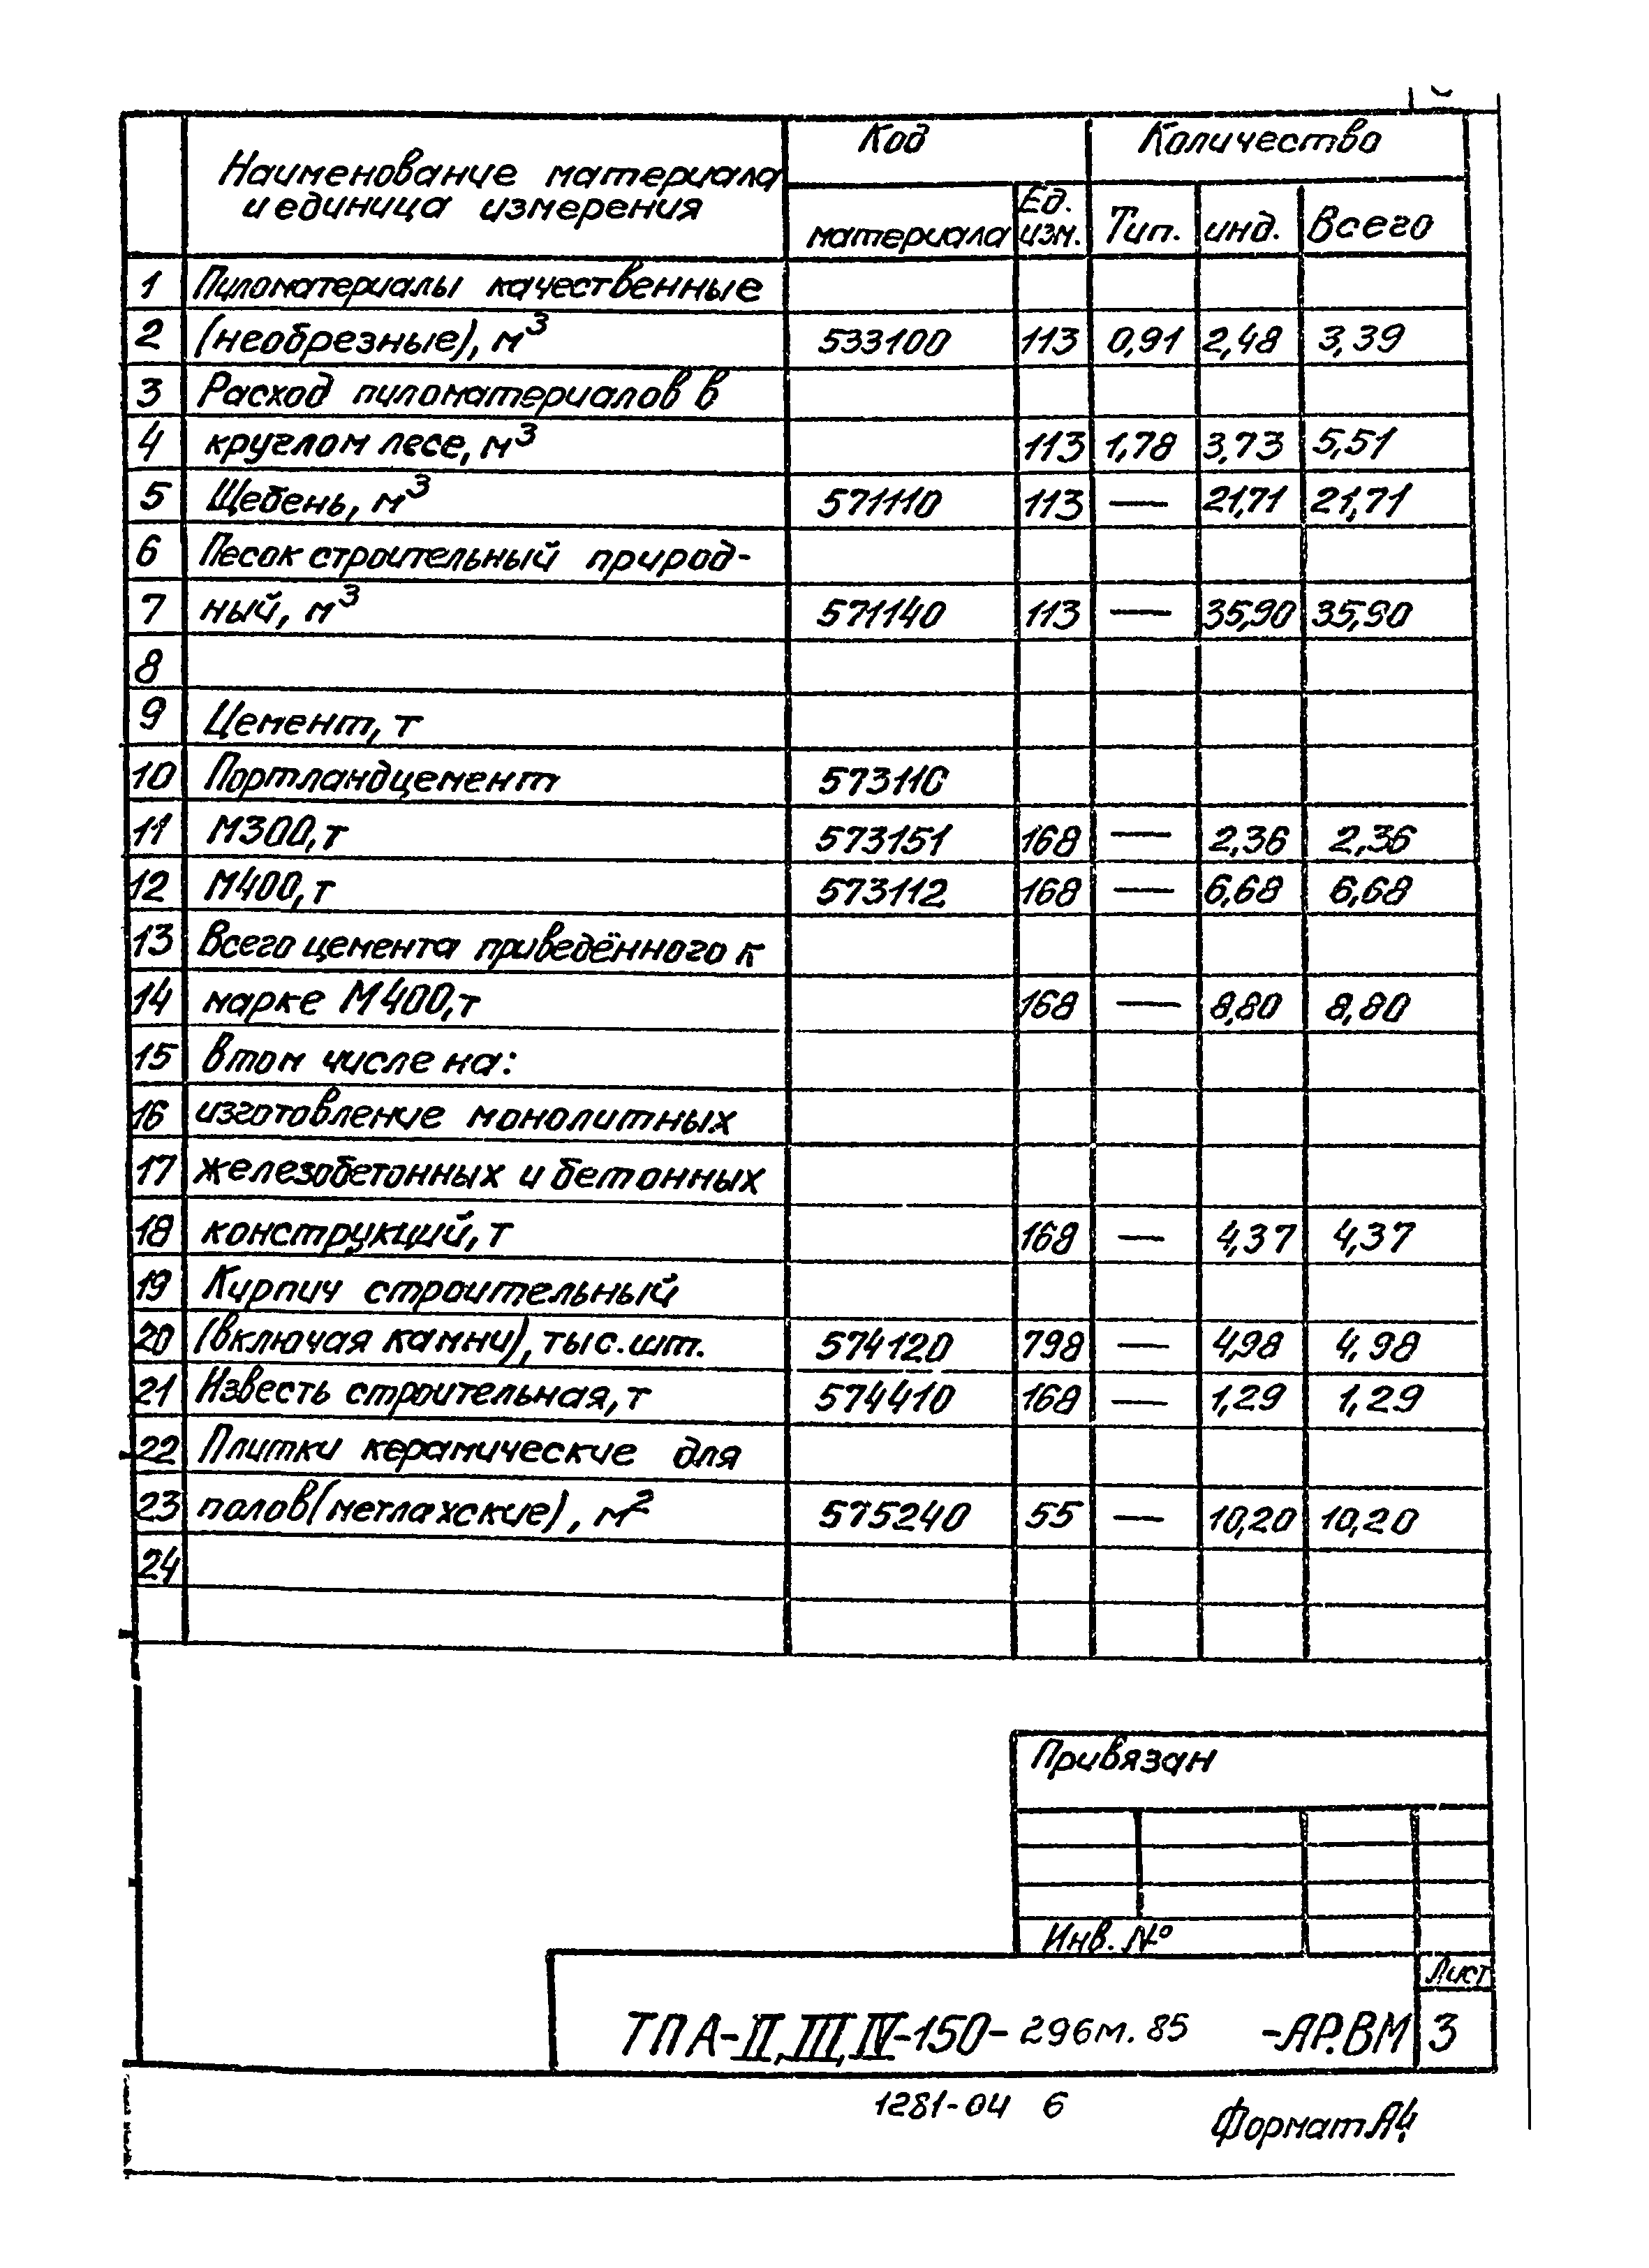 Наименование материала и единица измерения Код Количество
материала Ед. изм. Тип. инд. Всего
1 Пиломатериалы качественные
2 (необрезные), м³ 533100 113 0,91 2,48 3,39
3 Расход пиломатериалов в
4 круглом лесе, м³ 113 1,78 3,73 5,51
5 Щебень, м³ 571110 113 — 21,71 21,71
6 Песок строительный природ-
7 ный, м³ 571140 113 — 35,90 35,90
8
9 Цемент, т
10 Портландцемент 573110
11 М300, т 573151 168 — 2,36 2,36
12 М400, т 573112 168 — 6,68 6,68
13 Всего цемента приведённого к
14 марке М400, т 168 — 8,80 8,80
15 в том числе на:
16 изготовление монолитных
17 железобетонных и бетонных
18 конструкций, т 168 — 4,37 4,37
19 Кирпич строительный
20 (включая камни), тыс. шт. 574120 798 — 4,98 4,98
21 Известь строительная, т 574410 168 — 1,29 1,29
22 Плитки керамические для
23 полов (метлахские), м² 575240 55 — 10,20 10,20
24
Привязан
Инв. №
Лист
ТП А-II,III,IV-150-296м.85 -АР.ВМ 3
1281-04 6
Формат А4